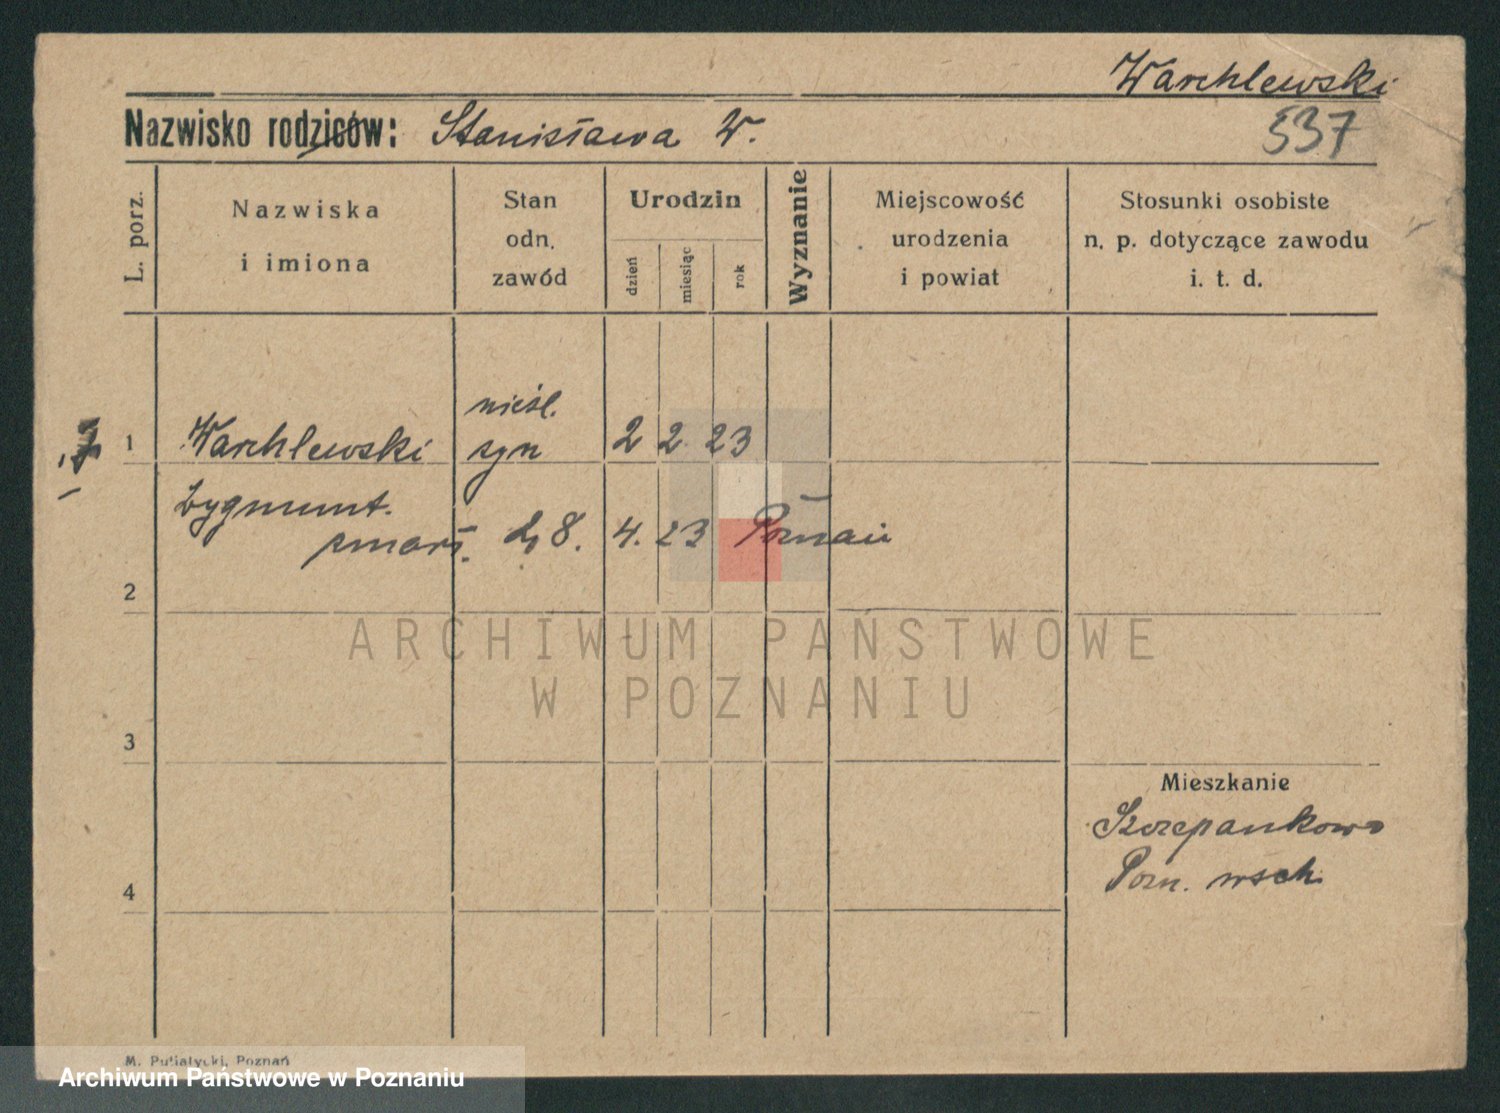 Warchlewski
Nazwisko rodziców: Stanisława W.
537
L. porz.
Nazwiska
i imiona
Stan
odn.
zawód
Urodzin
dzień
miesiąc
rok
Wyznanie
Miejscowość
urodzenia
i powiat
Stosunki osobiste
n. p. dotyczące zawodu
i. t. d.
nieśl.
1 Warchlewski syn 2 2. 23
Zygmunt.
zmarł. 28. 4. 23 Poznań
2
3
4
Mieszkanie
Szczepankowo
Pozn. wsch.
ARCHIWUM PAŃSTWOWE
W POZNANIU
M. Putiatycki, Poznań
Archiwum Państwowe w Poznaniu